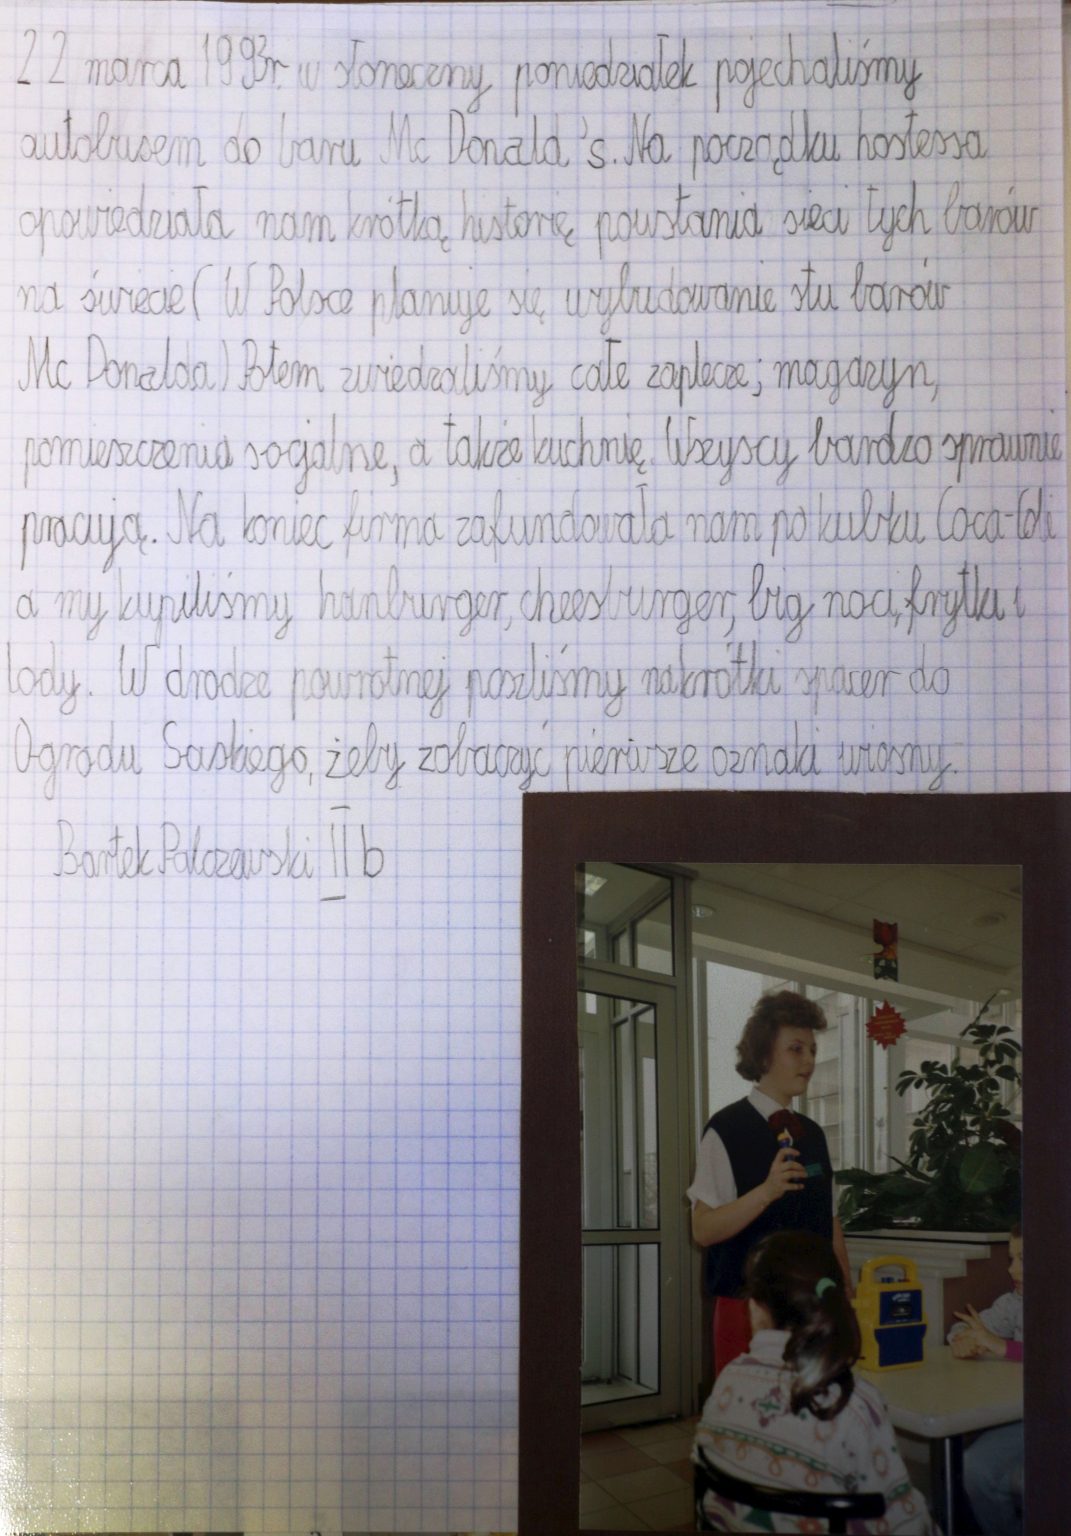 22 marca 1993r. w słoneczny poniedziałek pojechaliśmy
autobusem do baru Mc Donald's. Na początku hostessa
opowiedziała nam krótką historię powstania sieci tych barów
na świecie (W Polsce planuje się wybudowanie stu barów
Mc Donalda) Potem zwiedzaliśmy całe zaplecze; magazyn,
pomieszczenia socjalne, a także kuchnię. Wszyscy bardzo sprawnie
pracują. Na koniec firma zafundowała nam po kubku Coca-Coli
a my kupiliśmy hanburger, cheesburger, big maci, frytki i
lody. W drodze powrotnej poszliśmy na krótki spacer do
Ogrodu Saskiego, żeby zobaczyć pierwsze oznaki wiosny.
Bartek Palczewski II b